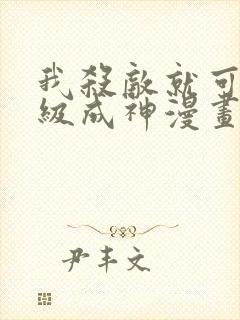 我殺敵就可
級成神漫畫
尹丰文